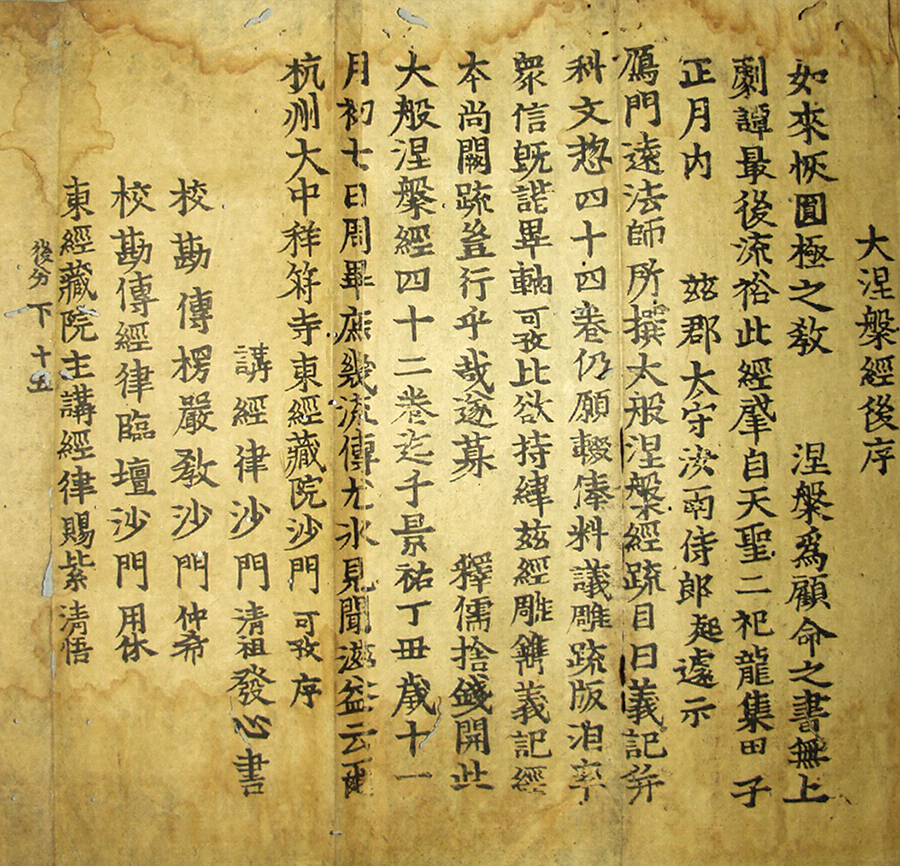 大涅槃經後序
如來恢罔極之教 涅槃爲顧命之書無上
劇譚最後流裕此經肇自天聖二祀龍集甲子
正月内 茲郡太守汝南侍郎起遽示
鴈門遠法師所撰大般涅槃經疏目曰義記幷
科文惣四十四卷仍願輟俸料議雕疏版洎率
衆信旣諧畢軸可孜比欲持緯茲經雕鐫義記經
本尚闕疏豈行乎哉遂募 釋儒捨錢開此
大般涅槃經四十二卷迄于景祐丁丑歲十一
月初七日周畢庶幾流傳尤氷見聞滋益云爾
杭州大中祥符寺東經藏院沙門 可孜 序
講經律沙門 清祖 發心書
校勘傳楞嚴教沙門 仲希
校勘傳經律臨壇沙門 用休
東經藏院主講經律賜紫 清悟
後分下 十五